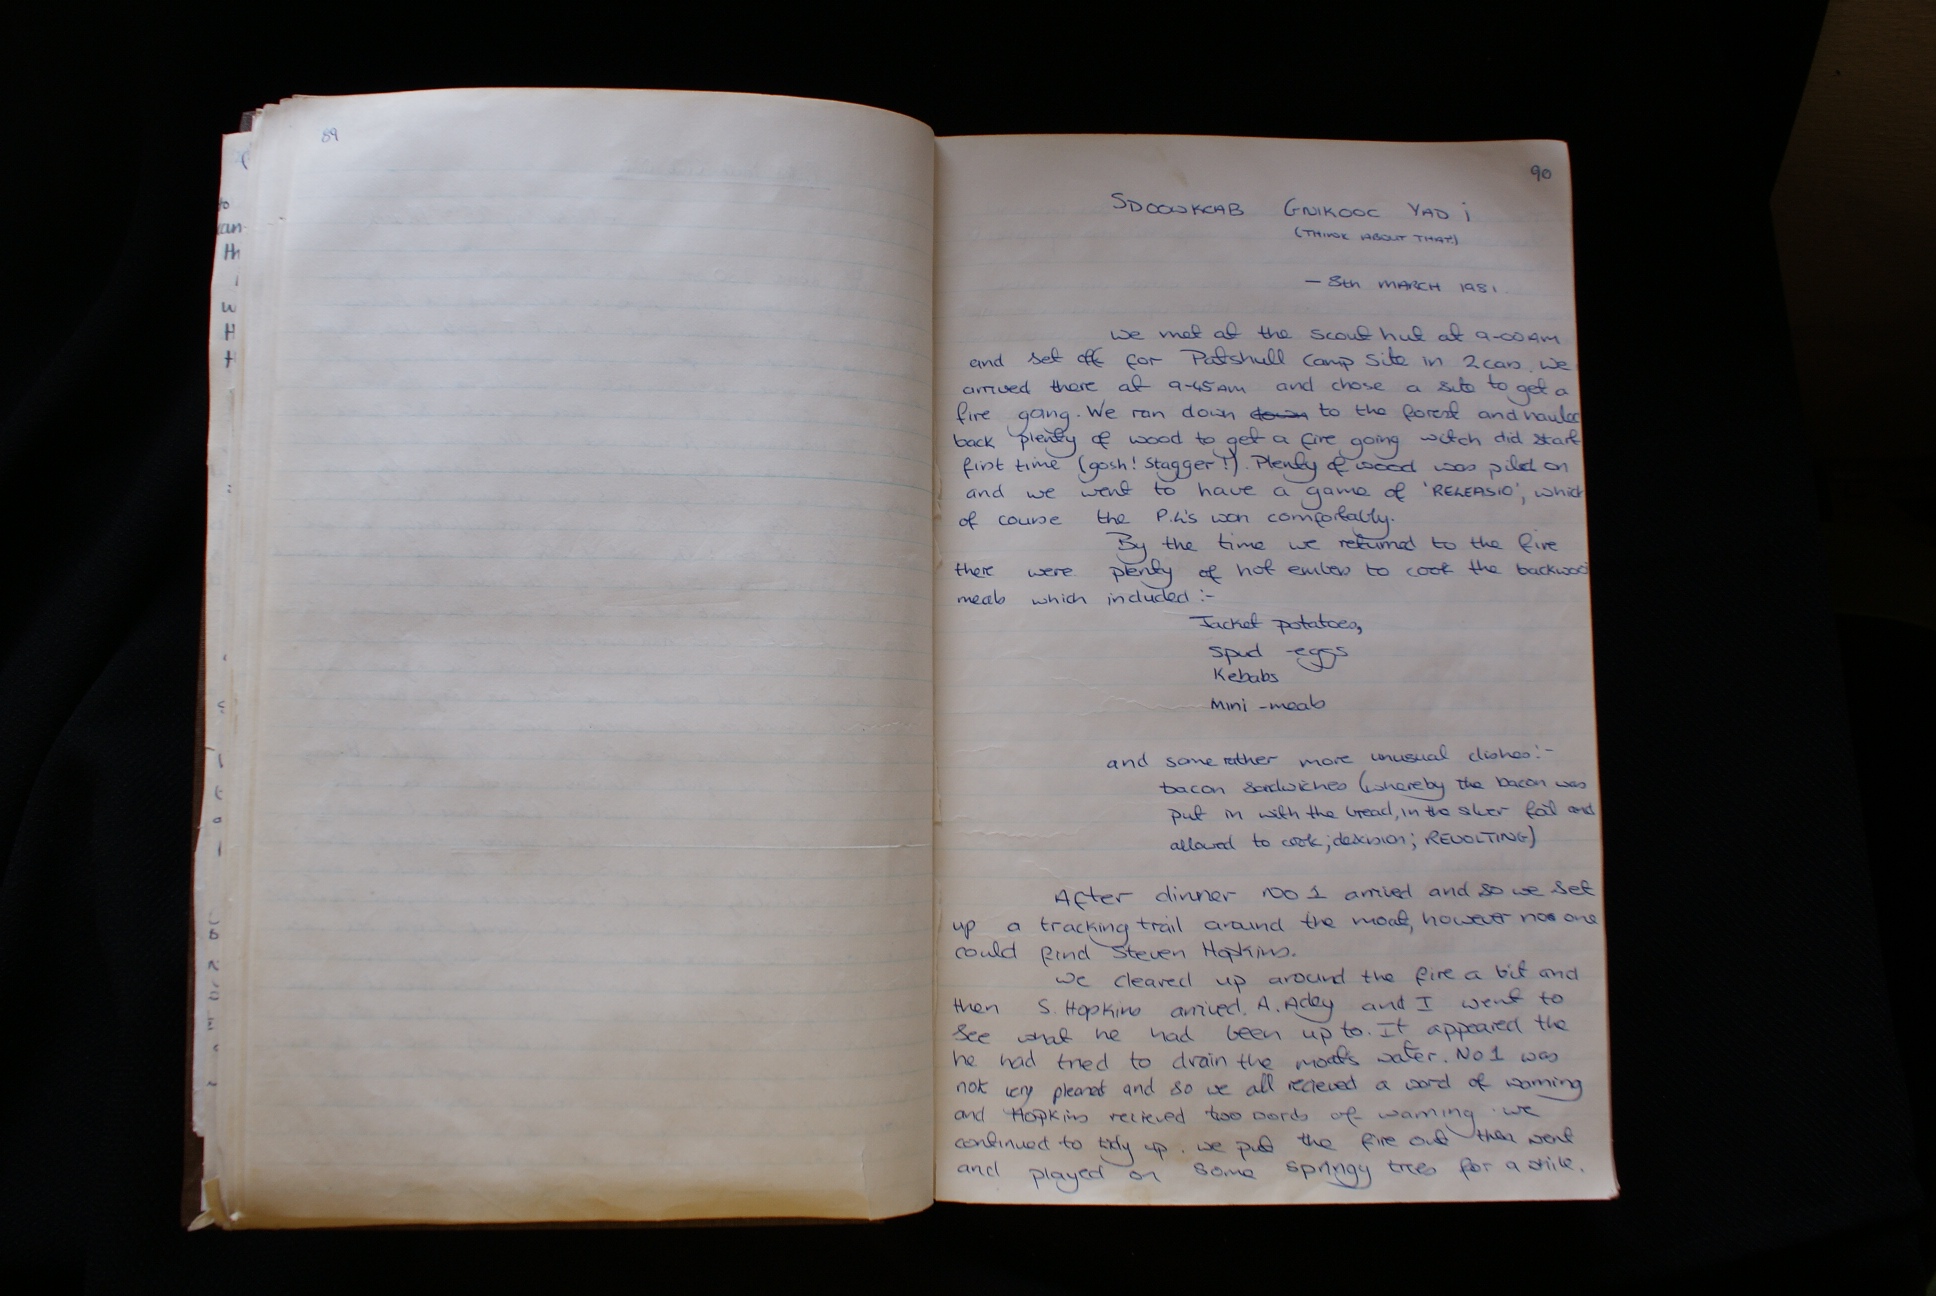 89
90
SDOOWKCAB GNIKOOC YAD ¡
(THINK ABOUT THAT!)
- 8th MARCH 1981.
We met at the scout hut at 9-00AM
and set off for Patshull Camp Site in 2 cars. We
arrived there at 9-45AM and chose a site to get a
fire going. We ran down down to the forest and hauled
back plenty of wood to get a fire going witch did start
first time (gosh! Stagger!). Plenty of wood was piled on
and we went to have a game of 'RELEASIO', which
of course the P.L's won comfortably.
By the time we returned to the fire
there were plenty of hot embers to cook the backwood
meals which included :-
Jacket potatoes,
Spud -eggs
Kebabs
Mini -meals
and some rather more unusual dishes:-
bacon sandwiches (whereby the bacon was
put in with the bread, in the silver foil and
allowed to cook; decision; REVOLTING)
After dinner No 1 arrived and so we set
up a tracking trail around the moat, however no one
could find Steven Hopkins.
We cleared up around the fire a bit and
then S. Hopkins arrived. A. Adey and I went to
see what he had been up to. It appeared the
he had tried to drain the moats water. No 1 was
not very pleased and so we all recieved a word of warning
and Hopkins recieved two words of warning. We
continued to tidy up. We put the fire out then went
and played on some springy trees for a while.